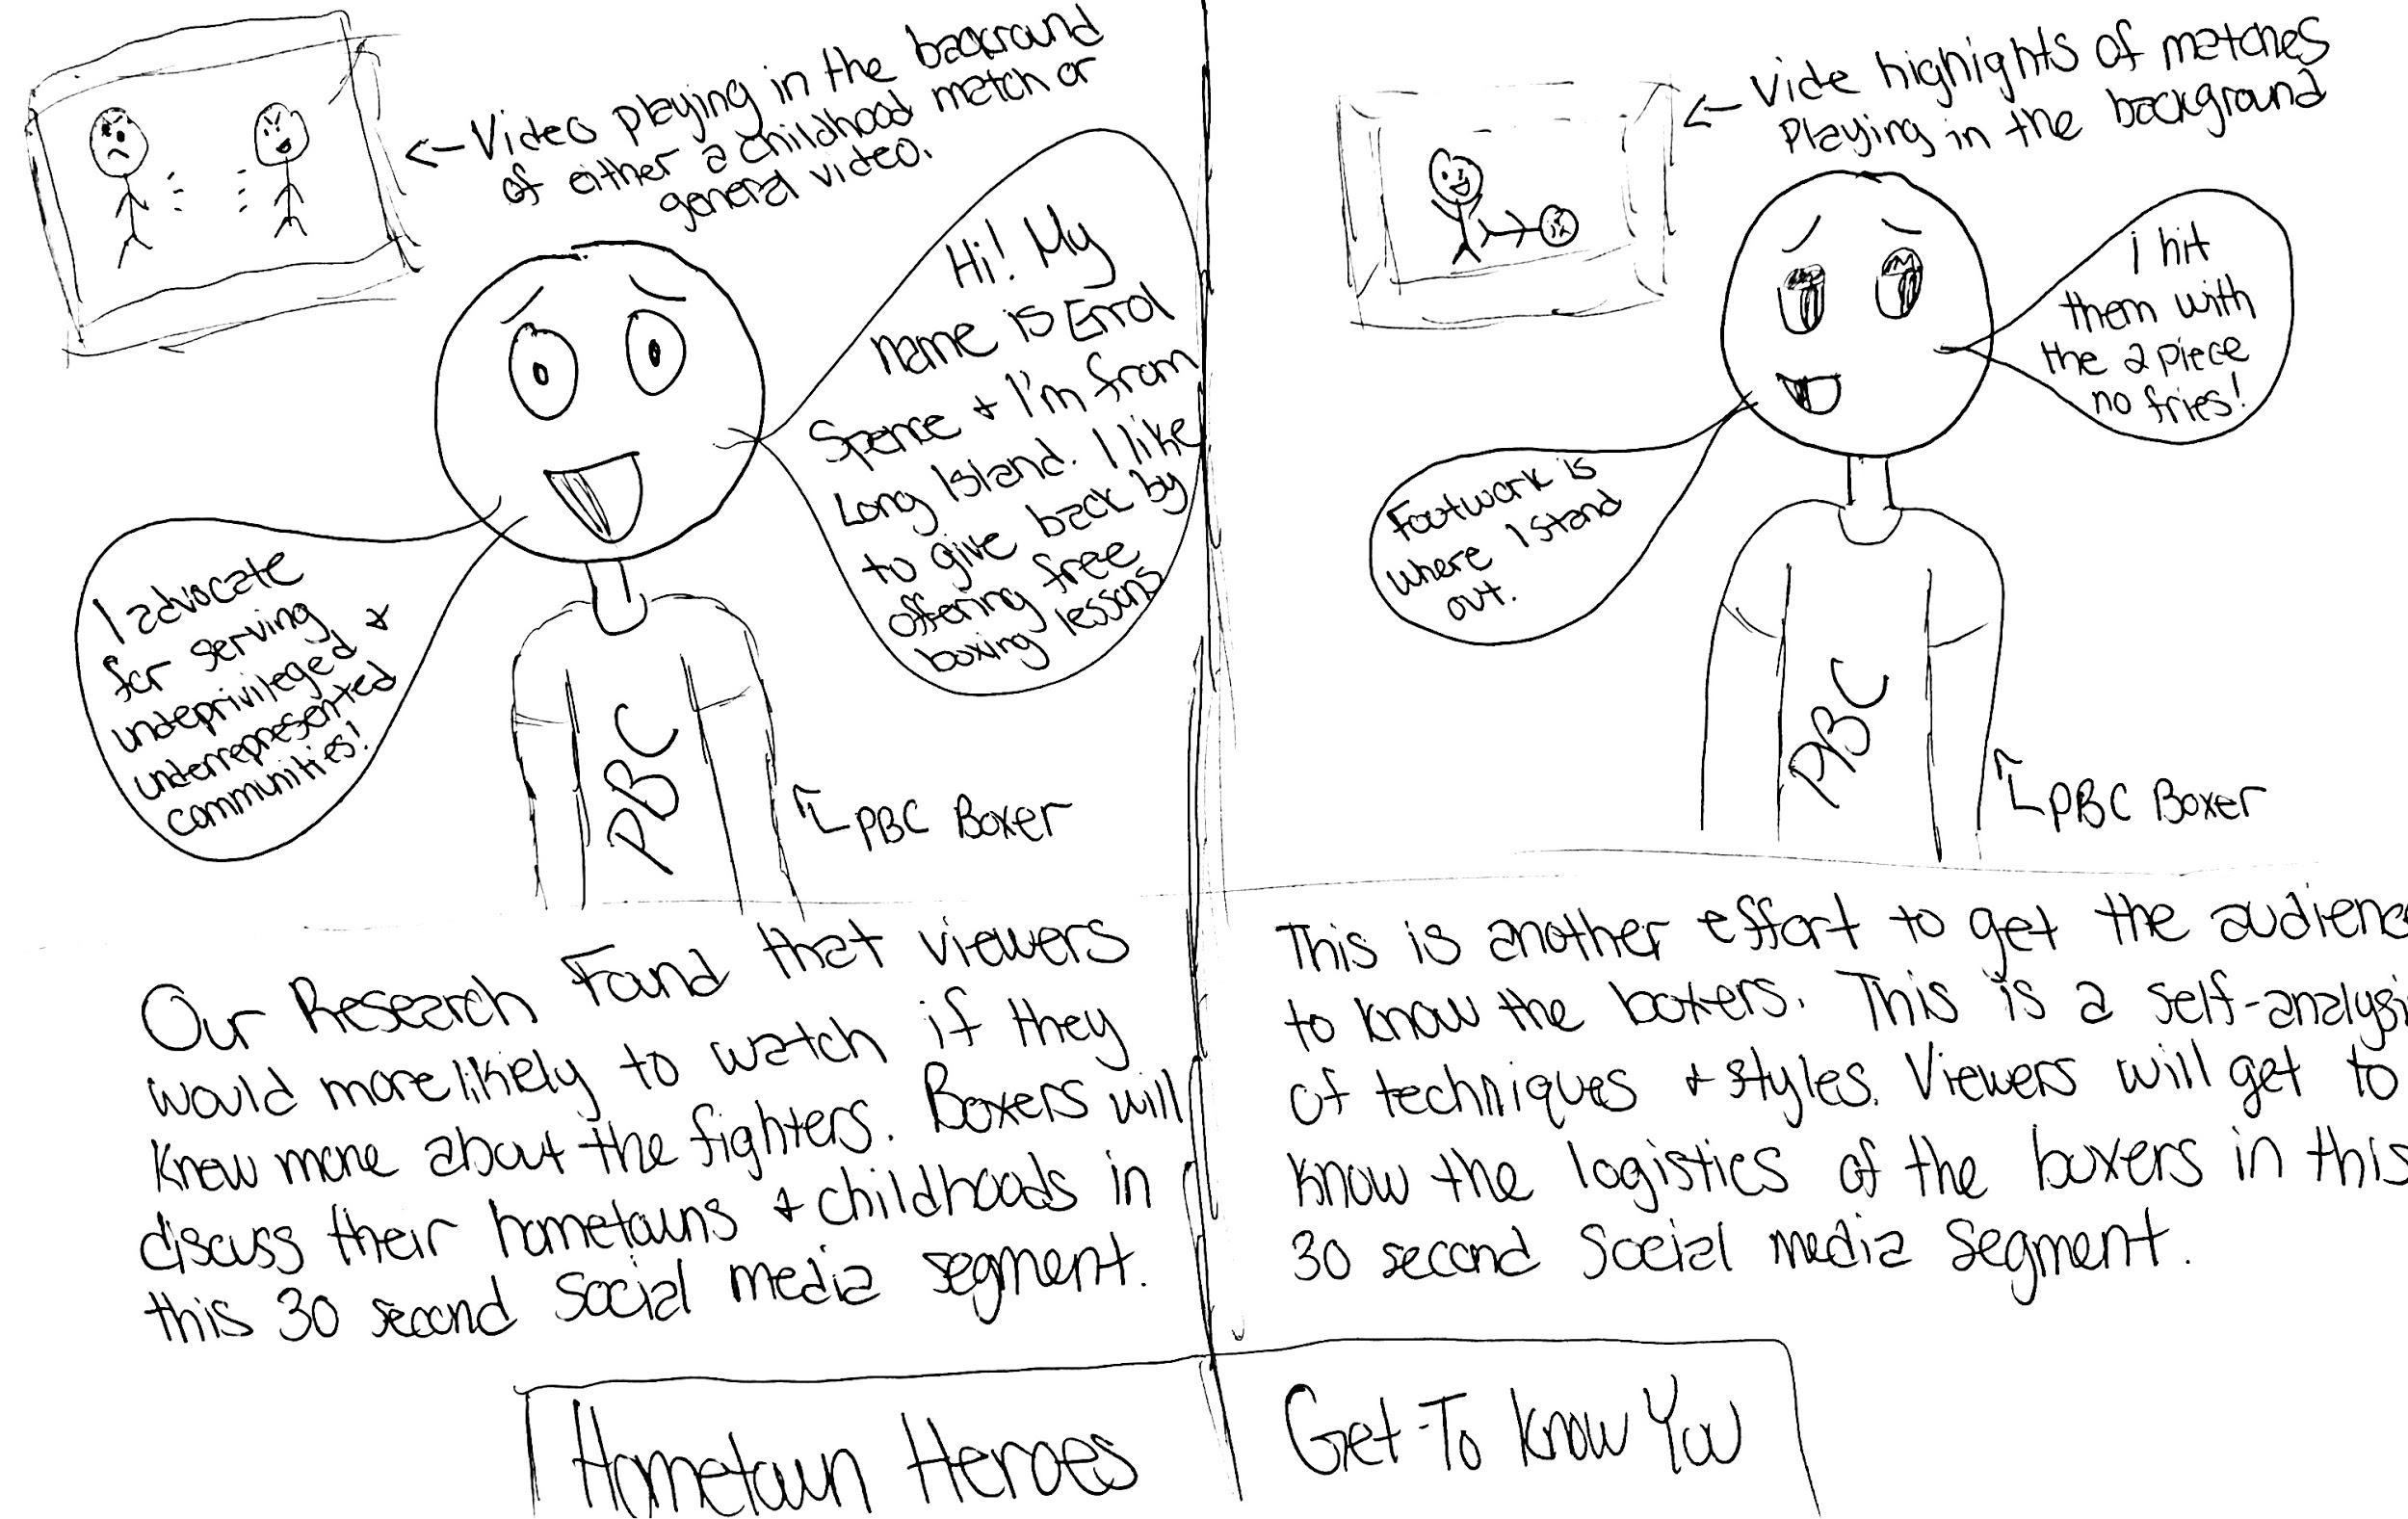 Video playing in the background
of either a childhood match or
general video.
Hi! My
name is Errol
Spence & I'm from
Long Island. I like
to give back by
offering free
boxing lessons
I advocate
for serving
undeprivileged &
underrepresented
communities!
PBC
PBC Boxer
Our Research Found that viewers
would more likely to watch if they
know more about the fighters. Boxers will
discuss their hometowns & childhoods in
this 30 second social media segment.
Hometown Heroes
Vide highights of matches
Playing in the background
I hit
them with
the 2 piece
no fries!
Footwork is
where I stand
out.
PBC
PBC Boxer
This is another effort to get the audienc
to know the boxers. This is a self-analysi
of techniques & styles. Viewers will get to
know the logistics of the boxers in this
30 second social media segment.
Get-To Know You